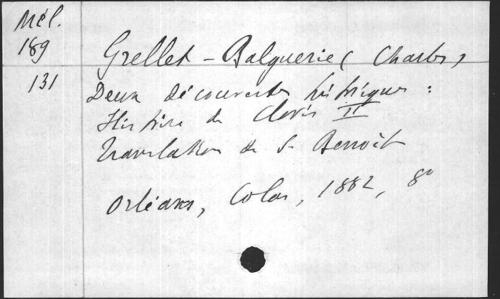 Mél.
189
131
Grellet-Balguerie (Charles)
Deux découvertes historiques :
Histoire de Clovis II
translation de St Benoît
Orléans, Colas, 1882, 8°